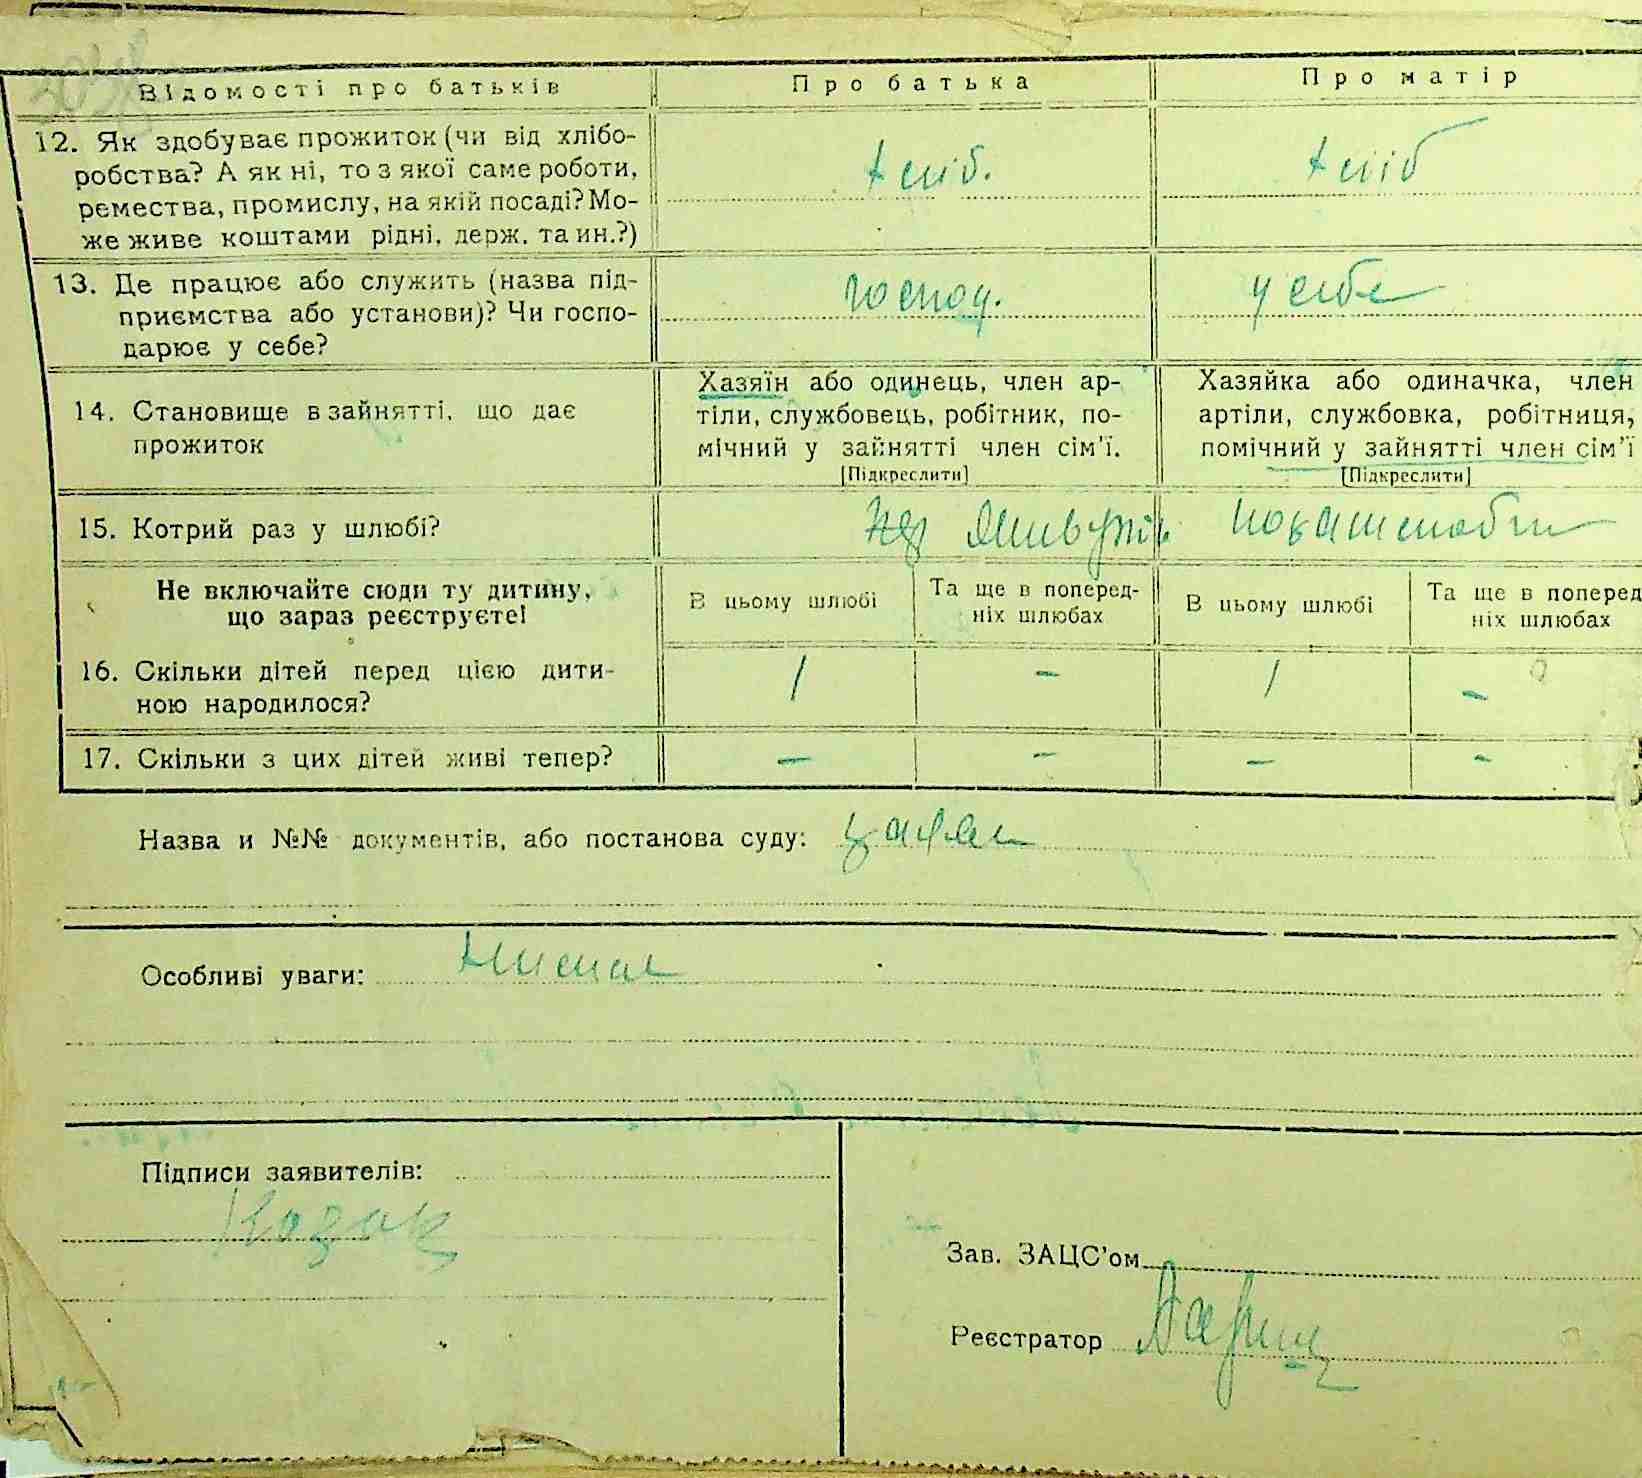 Відомості про батьків
Про батька
Про матір
12. Як здобуває прожиток (чи від хлібо-
робства? А як ні, то з якої саме роботи,
ремества, промислу, на якій посаді? Мо-
же живе коштами рідні, держ. та ин.?)
хліб.
хліб
13. Де працює або служить (назва під-
приємства або установи)? Чи госпо-
дарює у себе?
господ.
у себе
14. Становище в зайнятті, що дає
прожиток
Хазяїн або одинець, член ар-
тіли, службовець, робітник, по-
мічний у зайнятті член сім'ї.
[Підкреслити]
Хазяйка або одиначка, член
артіли, службовка, робітниця,
помічний у зайнятті член сім'ї
[Підкреслити]
15. Котрий раз у шлюбі?
Не включайте сюди ту дитину,
що зараз реєструєте!
В цьому шлюбі
Та ще в поперед-
ніх шлюбах
В цьому шлюбі
Та ще в поперед
ніх шлюбах
16. Скільки дітей перед цією дити-
ною народилося?
1
-
1
-
17. Скільки з цих дітей живі тепер?
-
-
-
-
Назва и №№ документів, або постанова суду:
Особливі уваги:
Підписи заявителів:
Козак
Зав. ЗАЦС'ом
Реєстратор